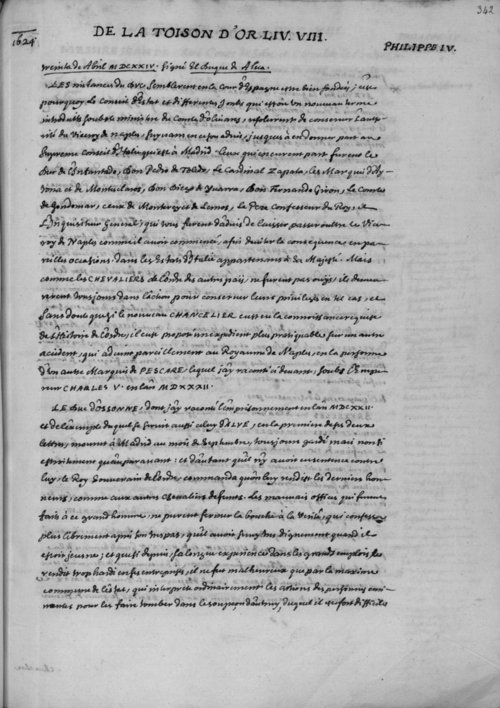 342
DE LA TOISON D'OR LIV. VIII.
1624. PHILIPPE IV.
treinta de Abril MDCXXIV. signé El Duque de Alva.
LES instances du Duc semblerent en la Cour d'Espagne estre bien fondées; c'est
pourquoy le Conseil d'estat et differentes Jontes qui estoit un nouveau terme
introduits soubs le ministere du Comte d'Olivares, resolurent de conserver l'auto-
rité du Viceroy de Naples, suyvant en cet advis, jusques à en donner part au
supreme Conseil d'Italie qui est à Madrid. Ceux qui y eurent part furent le
Duc de l'Infantado, Don Pedro de Toledo, le Cardinal Zapata, les Marquis d'Ay-
tona et de Montesclaros, Don Diego de Yvarra, Don Fernando Giron, le Comte
de Gondomar, ceux de Monterey et de Lemos, le Pere Confesseur du Roy, et
l'Inquisiteur General; qui tous furent d'advis de laisser passer outre le Vice-
roy de Naples comme il avoit commencé, afin d'eviter la consequence en pa-
reilles occasions, dans les Estats d'Italie appartenans à sa Majesté. Mais
comme les CHEVALIERS de l'ordre des autres pays, ne furent pas ouys, ils demeu-
rerent tousjours dans l'action pour conserver leurs privileges en tel cas, et
sans doute que si le nouveau CHANCELIER eust eu la connoissance requise
de l'Histoire de l'ordre, il eust proposé un expedient plus pratiquable sur un autre
accident, qui advint pareillement au Royaume de Naples, en la personne
d'un autre Marquis de PESCARE, lequel j'ay raconté ci devant, soubs l'Empe-
reur CHARLES V. en l'an MDXXXII.
LE Duc d'OSSONNE, dont j'ay raconté l'emprisonnement en l'an MDCXXII.
et de l'exemple duquel se servit aussi celuy d'ALVE, en la premiere de ses deux
lettres, mourut à Madrid au mois de Septembre, tousjours gardé mais non si
estroitement qu'auparavant: et d'autant qu'il n'y avoit eu sentence contre
luy, le Roy Souverain de l'ordre commanda qu'on luy rendist les derniers hon-
neurs, comme aux autres Chevaliers defunts. Les mauvais offices qui furent
faits à ce grand homme, ne purent fermer la bouche à la verité, qui confessa
plus librement apres son trespas, qu'il avoit servy tres dignement quand il
estoit jeune; et que si depuis, la longue experience dans les grands emplois le
rendit trop hardi en ses entreprises, il ne fut malheureux que par la maxime
commune de l'estat, qui interprete ordinairement les actions des personnes emi-
nentes pour les faire tomber dans le soupçon d'autruy, duquel il est fort difficile